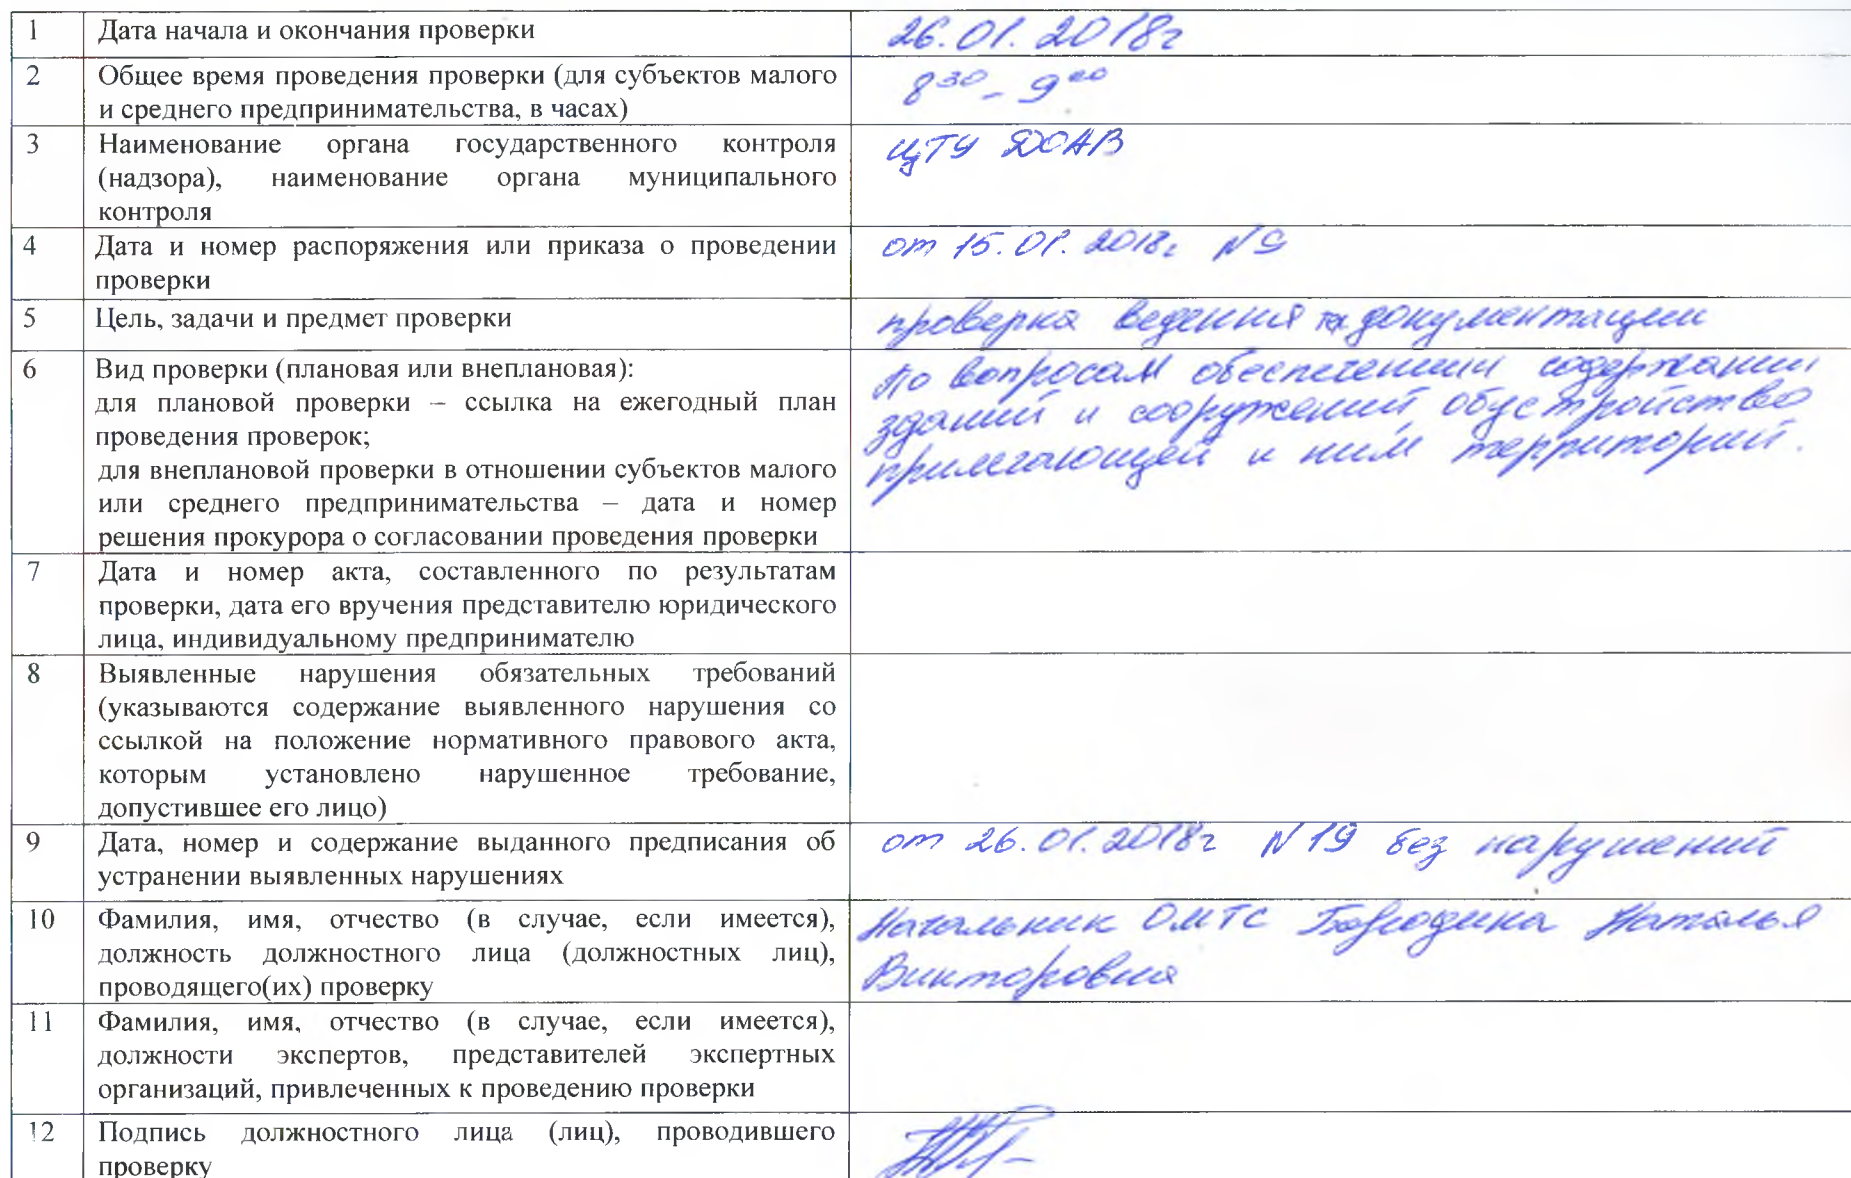 1 Дата начала и окончания проверки 26.01.2018г
2 Общее время проведения проверки (для субъектов малого
и среднего предпринимательства, в часах)
8³⁰ - 9⁰⁰
3 Наименование органа государственного контроля
(надзора), наименование органа муниципального
контроля
ЦТУ ДОАВ
4 Дата и номер распоряжения или приказа о проведении
проверки
от 15.01.2018г N9
5 Цель, задачи и предмет проверки
проверка ведения документации
по вопросам обеспечении содержании
зданий и сооружений, обустройство
прилегающей к ним территорий.
6 Вид проверки (плановая или внеплановая):
для плановой проверки – ссылка на ежегодный план
проведения проверок;
для внеплановой проверки в отношении субъектов малого
или среднего предпринимательства – дата и номер
решения прокурора о согласовании проведения проверки
7 Дата и номер акта, составленного по результатам
проверки, дата его вручения представителю юридического
лица, индивидуальному предпринимателю
8 Выявленные нарушения обязательных требований
(указываются содержание выявленного нарушения со
ссылкой на положение нормативного правового акта,
которым установлено нарушенное требование,
допустившее его лицо)
9 Дата, номер и содержание выданного предписания об
устранении выявленных нарушениях
от 26.01.2018г N19 без нарушений
10 Фамилия, имя, отчество (в случае, если имеется),
должность должностного лица (должностных лиц),
проводящего(их) проверку
Начальник ОМТС Наталья
Викторовна
11 Фамилия, имя, отчество (в случае, если имеется),
должности экспертов, представителей экспертных
организаций, привлеченных к проведению проверки
12 Подпись должностного лица (лиц), проводившего
проверку